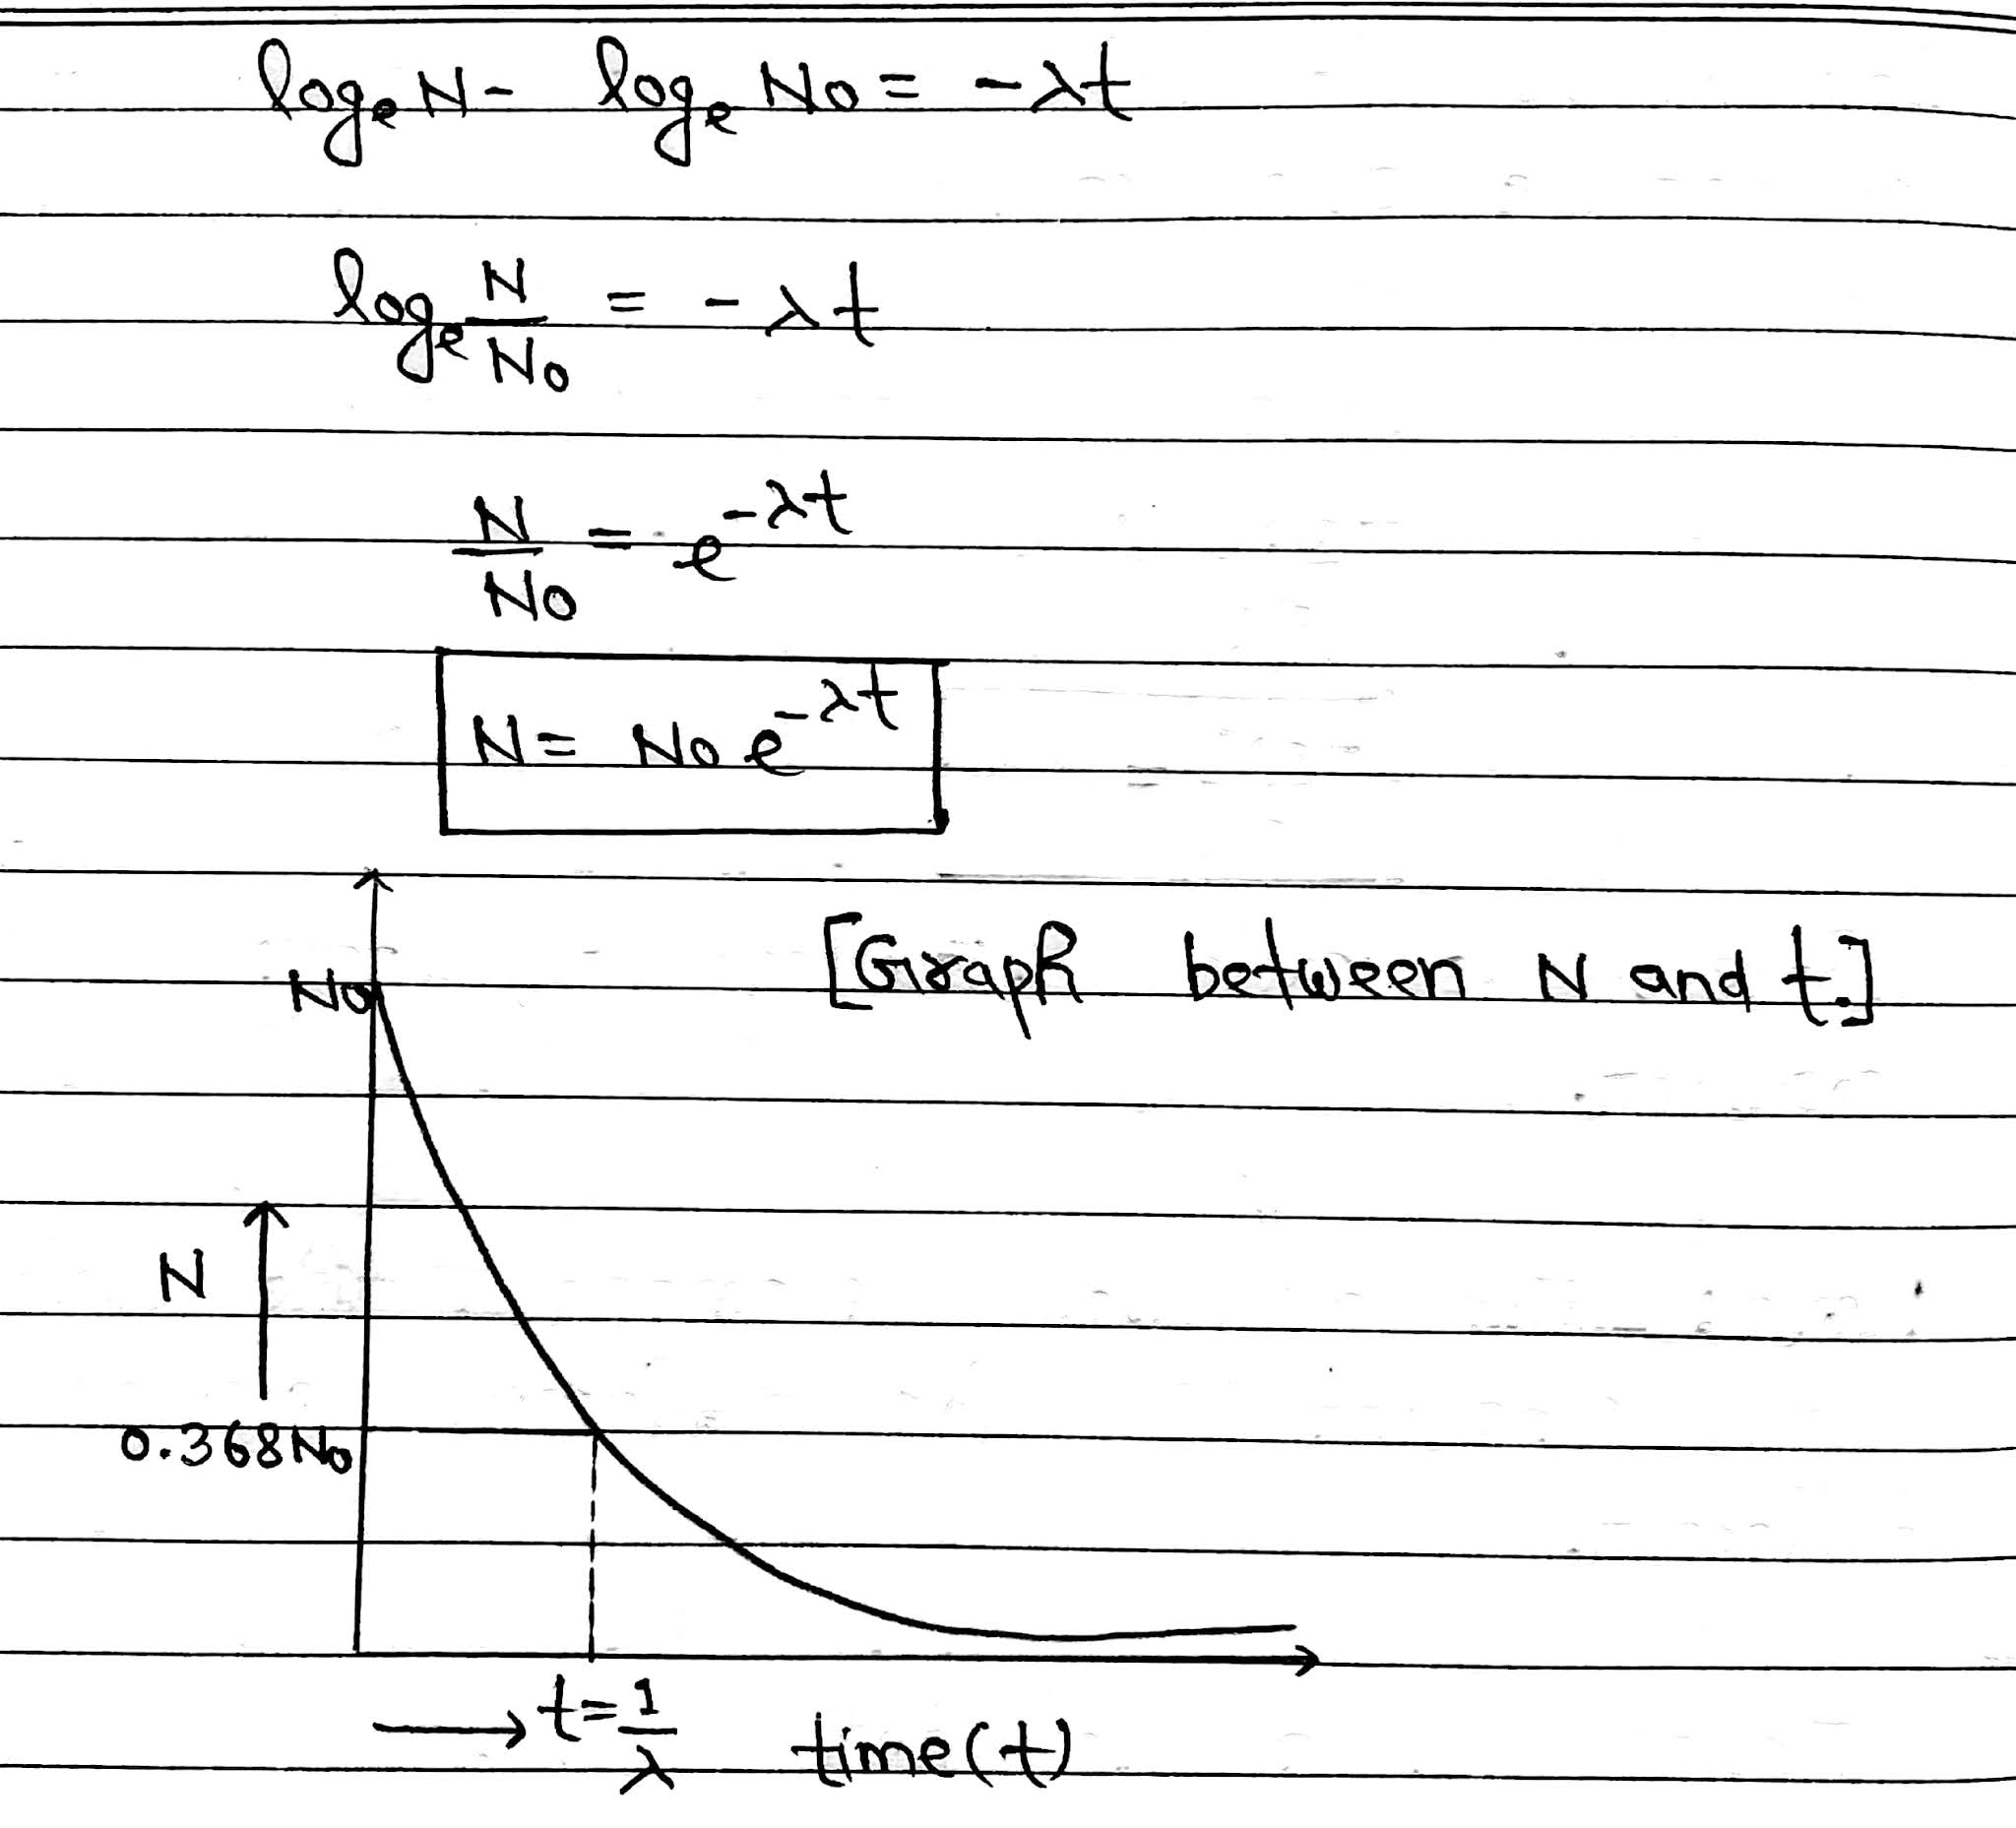 logₑ N - logₑ N₀ = -λt
logₑ N/N₀ = -λt
N/N₀ = e^-λt
N = N₀ e^-λt
[Graph between N and t.]
N₀
N
0.368N₀
t = 1/λ
time(t)